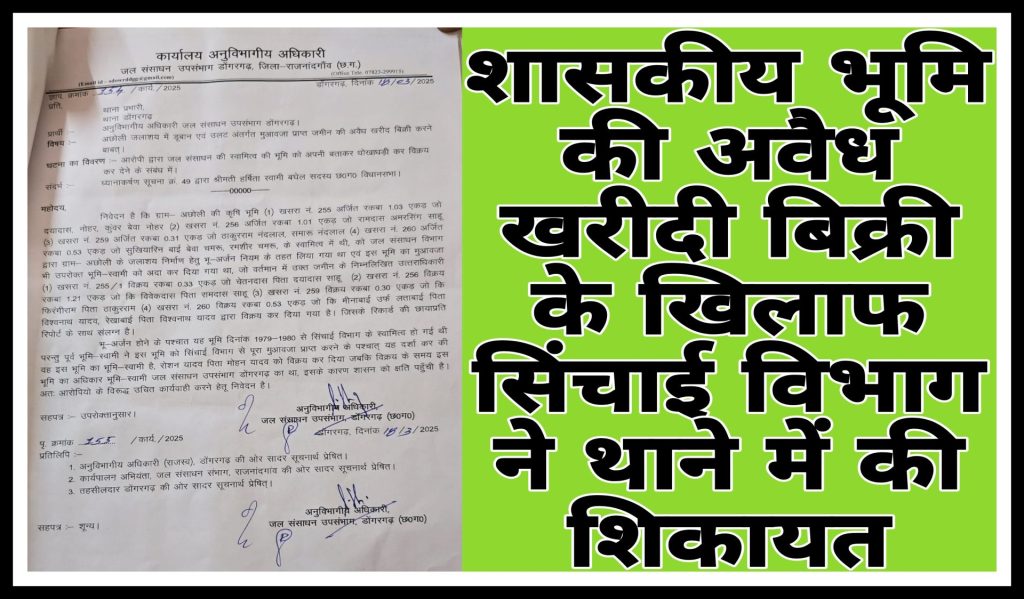 कार्यालय अनुविभागीय अधिकारी
जल संसाधन उपसंभाग डोंगरगढ़, जिला-राजनांदगाँव (छ.ग.)
(Office Tele. 07823-299915)
डोंगरगढ़, दिनांक 18/03/2025
क्रमांक 254 /कार्य./2025
प्रति,
थाना प्रभारी,
थाना डोंगरगढ़
प्रार्थी :- अनुविभागीय अधिकारी जल संसाधन उपसंभाग डोंगरगढ़।
विषय :- अछोली जलाशय में डूबान एवं उलट अंतर्गत मुआवजा प्राप्त जमीन की अवैध खरीद बिक्री करने
बाबत्।
घटना का विवरण :- आरोपी द्वारा जल संसाधन की स्वामित्व की भूमि को अपनी बताकर धोखाधड़ी कर विक्रय
कर देने के संबंध में।
संदर्भ :- ध्यानाकर्षण सूचना क्र. 49 द्वारा श्रीमती हर्षिता स्वामी बघेल सदस्य छ0ग0 विधानसभा।
-----00000-----
महोदय,
निवेदन है कि ग्राम- अछोली की कृषि भूमि (1) खसरा नं. 255 अर्जित रकबा 1.03 एकड़ जो
दयादास, नोहर, कुंवर बेवा नोहर (2) खसरा नं. 256 अर्जित रकबा 1.01 एकड़ जो रामदास अमरसिंग साहू
(3) खसरा नं. 259 अर्जित रकबा 0.31 एकड़ जो ठाकुरराम नंदलाल, समारू नंदलाल (4) खसरा नं. 260 अर्जित
रकबा 0.53 एकड़ जो सुखियारिन बाई बेवा चमरू, रमशीर चमरू, के स्वामित्व में थी, को जल संसाधन विभाग
द्वारा ग्राम- अछोली के जलाशय निर्माण हेतु भू-अर्जन नियम के तहत लिया गया था एवं इस भूमि का मुआवजा
भी उपरोक्त भूमि-स्वामी को अदा कर दिया गया था, जो वर्तमान में उक्त जमीन के निम्नलिखित उत्तराधिकारी
(1) खसरा नं. 255/1 विक्रय रकबा 0.33 एकड़ जो चेतनदास पिता दयादास साहू (2) खसरा नं. 256 विक्रय
रकबा 1.21 एकड़ जो कि विवेकदास पिता रामदास साहू (3) खसरा नं. 259 विक्रय रकबा 0.30 एकड़ जो कि
फिरंगीराम पिता ठाकुरराम (4) खसरा नं. 260 विक्रय रकबा 0.53 एकड़ जो कि मीनाबाई उर्फ लताबाई पिता
विश्वनाथ यादव, रेखाबाई पिता विश्वनाथ यादव द्वारा विक्रय कर दिया गया है। जिसके रिकार्ड की छायाप्रति
रिपोर्ट के साथ संलग्न है।
भू-अर्जन होने के पश्चात यह भूमि दिनांक 1979-1980 से सिंचाई विभाग के स्वामित्व हो गई थी
परन्तु पूर्व भूमि-स्वामी ने इस भूमि को सिंचाई विभाग से पूरा मुआवजा प्राप्त करने के पश्चात् यह दर्शा कर की
वह इस भूमि का भूमि-स्वामी है, रोशन यादव पिता मोहन यादव को विक्रय कर दिया जबकि विक्रय के समय इस
भूमि का अधिकार भूमि-स्वामी जल संसाधन उपसंभाग डोंगरगढ़ का था, इसके कारण शासन को क्षति पहुँची है।
अतः आरोपियो के विरूद्ध उचित कार्यवाही करने हेतु निवेदन है।
सहपत्र :- उपरोक्तानुसार।
अनुविभागीय अधिकारी,
जल संसाधन उपसंभाग, डोंगरगढ़ (छ0ग0)
डोंगरगढ़, दिनांक 18/3/2025
पृ. क्रमांक 255 /कार्य./2025
प्रतिलिपि :-
1. अनुविभागीय अधिकारी (राजस्व), डोंगरगढ़ की ओर सादर सूचनार्थ प्रेषित।
2. कार्यपालन अभियंता, जल संसाधन संभाग, राजनांदगांव की ओर सादर सूचनार्थ प्रेषित।
3. तहसीलदार डोंगरगढ़ की ओर सादर सूचनार्थ प्रेषित्।
अनुविभागीय अधिकारी,
जल संसाधन उपसंभाग, डोंगरगढ़ (छ0ग0)
सहपत्र :- शून्य।
शासकीय भूमि
की अवैध
खरीदी बिक्री
के खिलाफ
सिंचाई विभाग
ने थाने में की
शिकायत